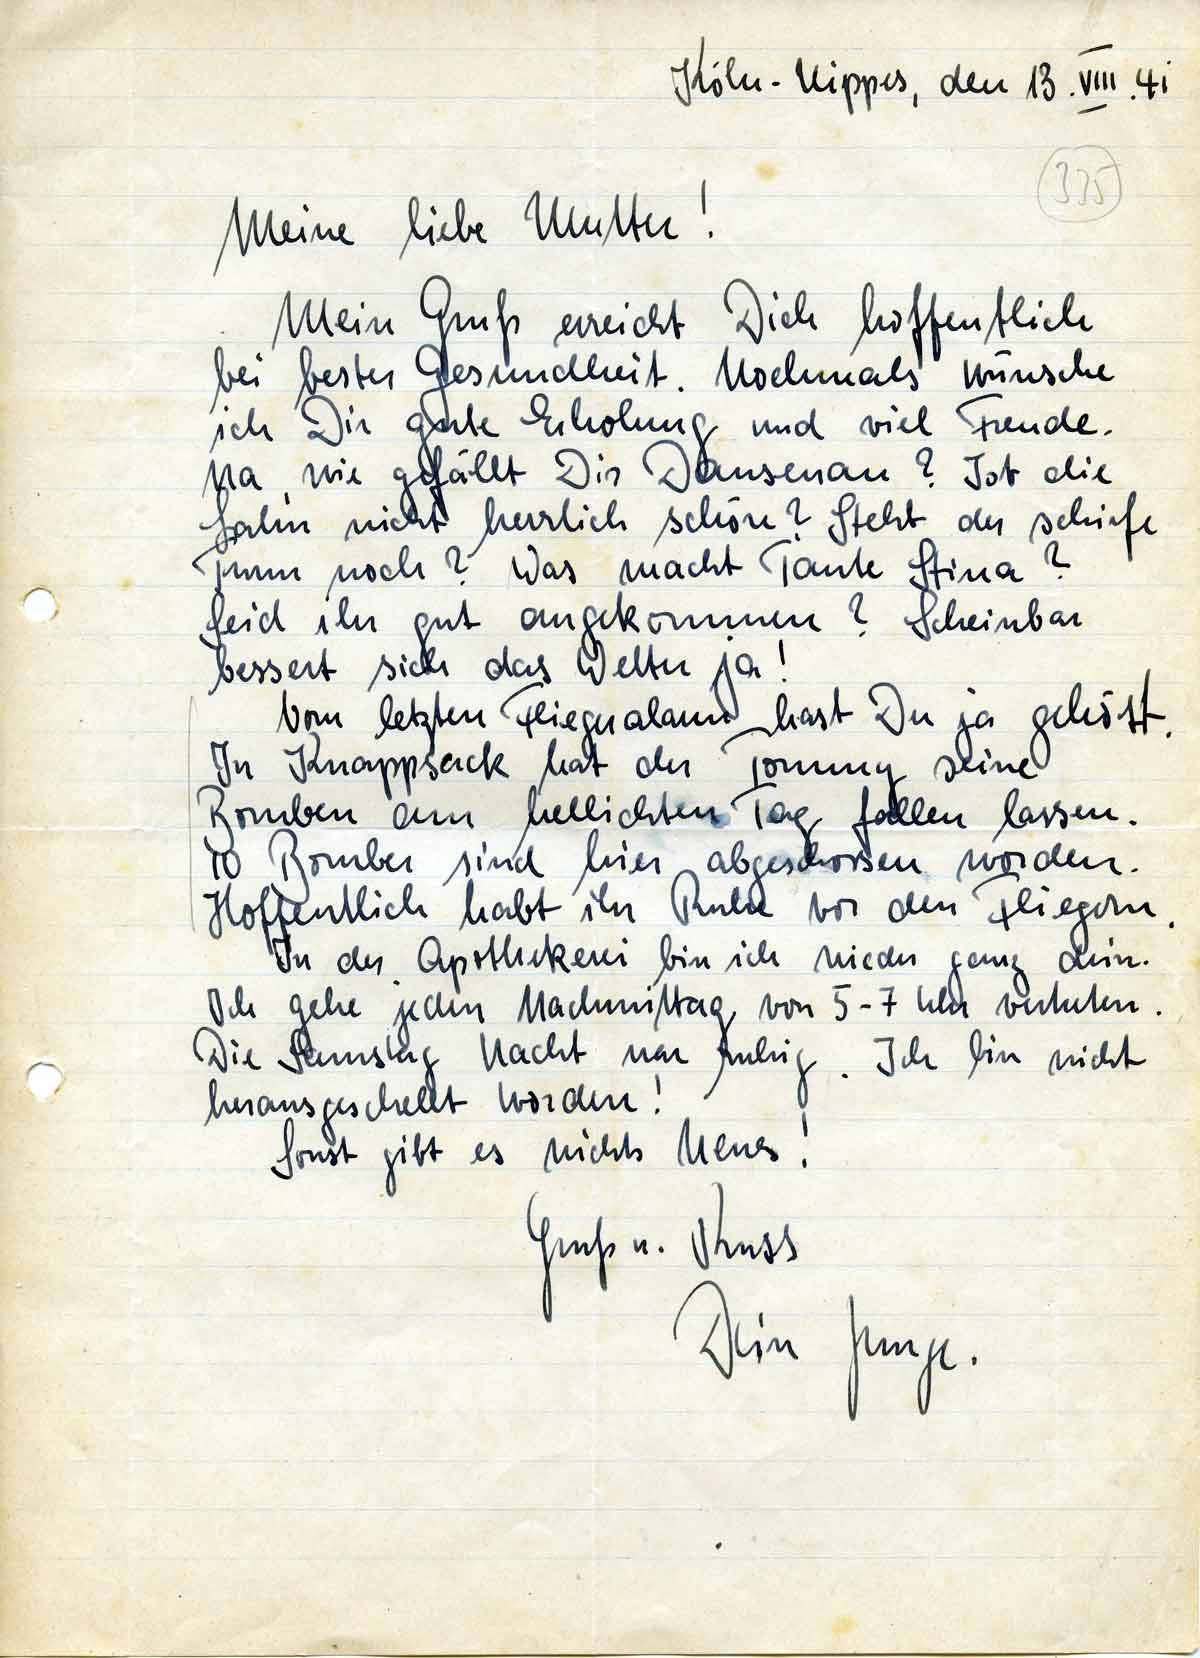 Köln-Nippes, den 13.VIII.41
335
Meine liebe Mutter!
Mein Gruß erreicht Dich hoffentlich
bei bester Gesundheit. Nochmals wünsche
ich Dir gute Erholung und viel Freude.
Na, wie gefällt Dir Dausenau? Ist die
Lahn nicht herrlich schön? Steht der schiefe
Turm noch? Was macht Tante Stina?
Seid ihr gut angekommen? Scheinbar
bessert sich das Wetter ja!
Vom letzten Fliegeralarm hast Du ja gehört.
In Knappsack hat der Tommy seine
Bomben am hellichten Tag fallen lassen.
10 Bomber sind hier abgeschossen worden.
Hoffentlich habt ihr Ruhe vor den Fliegern.
In der Apothekerei bin ich wieder ganz drin.
Ich gehe jeden Nachmittag von 5-7 Uhr vertreten.
Die Samstag Nacht war ruhig. Ich bin nicht
herausgeschellt worden!
Sonst gibt es nichts Neues!
Gruß u. Kuss
Dein Junge.